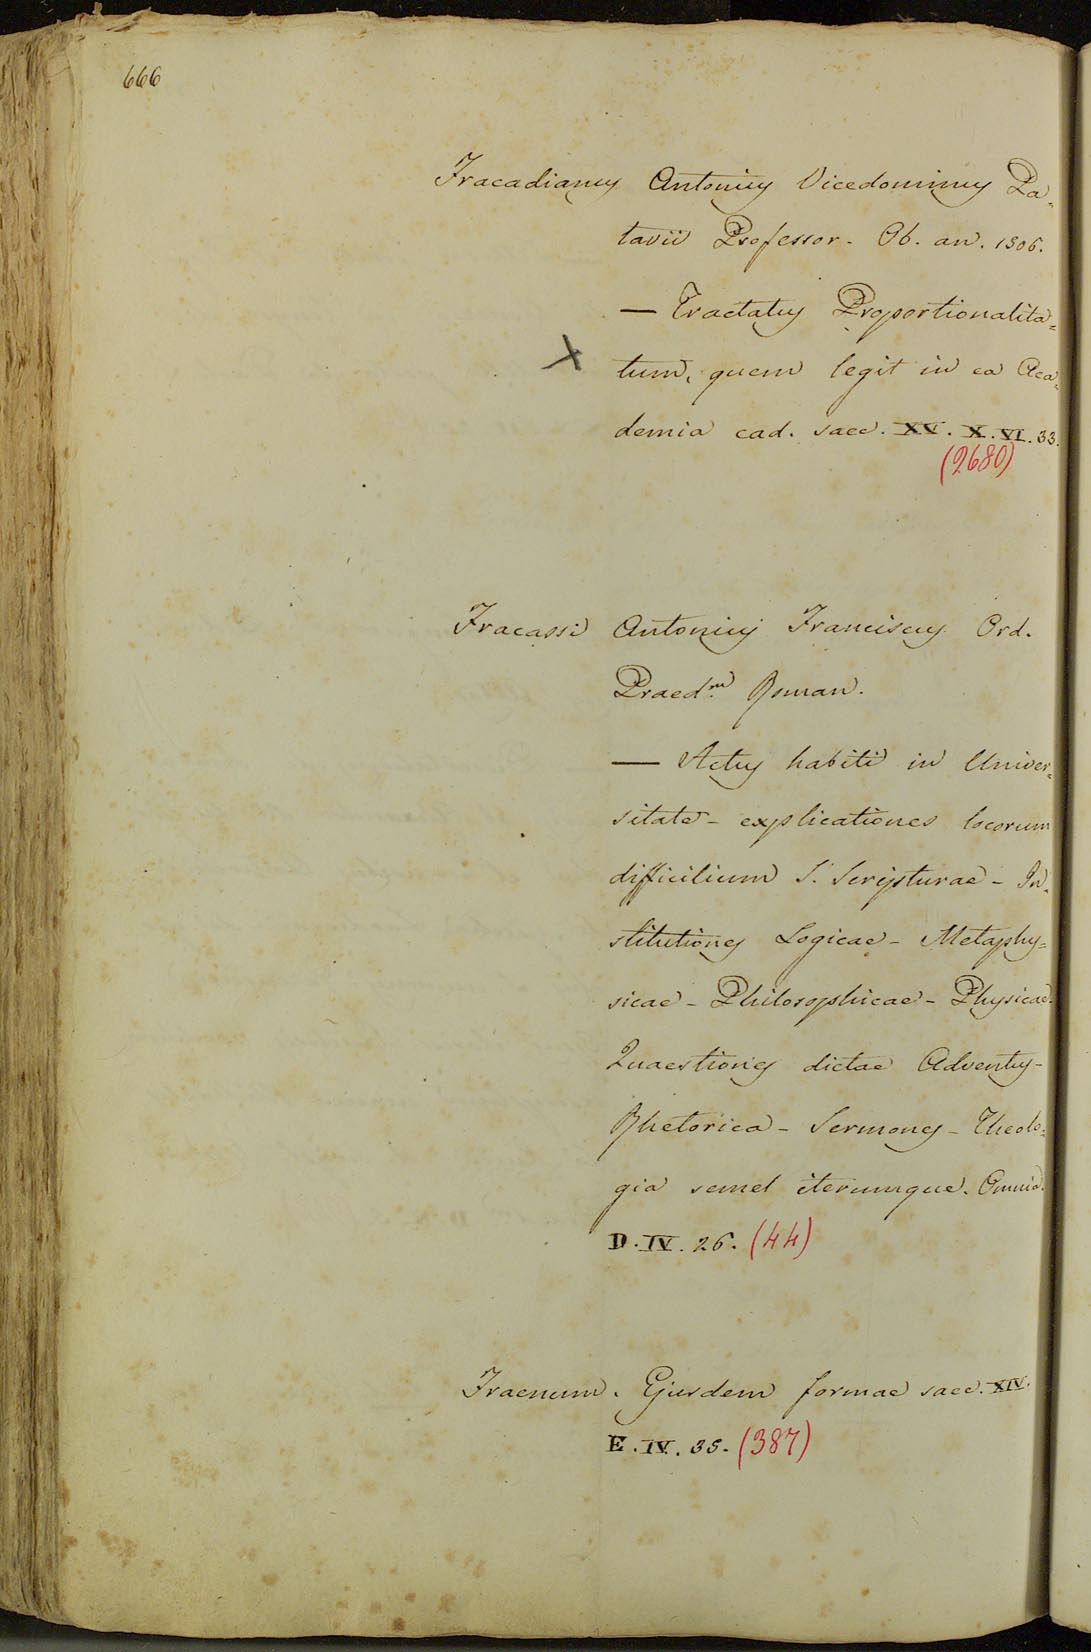 666
Fracadianus Antonius Vicedominus Pa=
tavii Professor. Ob. an. 1506.
— Tractatus Proportionalita=
X tum, quem legit in ea Aca=
demia cad. saec. XV. X. VI. 33.
(2680)
Fracassi Antonius Franciscus Ord.
Praed.m Roman.
— Actus habiti in Univer=
sitate - explicationes locorum
difficilium S. Scripturae - In=
stitutiones Logicae - Metaphy=
sicae - Philosophicae - Physicae.
Quaestiones dictae Adventus -
Rhetorica - Sermones - Theolo=
gia semel iterumque. Omnia.
D. IV. 26. (44)
Fraenum. Ejusdem formae saec. XIV.
E. IV. 35. (387)